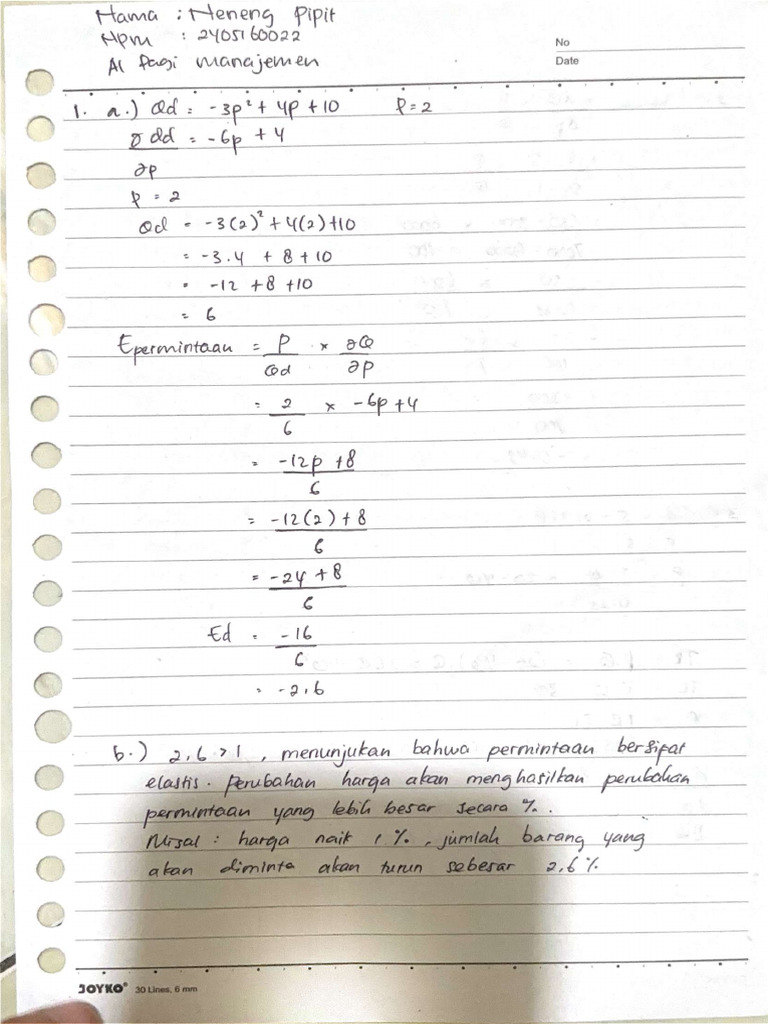 Nama : Neneng Pipit
Npm : 2405160022
A1 Pagi manajemen
No
Date
1. a.) Qd = -3p² + 4p + 10 P = 2
∂ Qd = -6p + 4
∂p
P = 2
Qd = -3(2)² + 4(2) + 10
= -3.4 + 8 + 10
= -12 + 8 + 10
= 6
Epermintaan = P/Qd × ∂Q/∂P
= 2/6 × -6p + 4
= -12p + 8 / 6
= -12(2) + 8 / 6
= -24 + 8 / 6
Ed = -16 / 6
= -2,6
b.) 2,6 > 1, menunjukan bahwa permintaan bersifat
elastis. Perubahan harga akan menghasilkan perubahan
permintaan yang lebih besar secara %.
Misal : harga naik 1%, jumlah barang yang
akan diminta akan turun sebesar 2,6%
JOYKO® 30 Lines, 6 mm